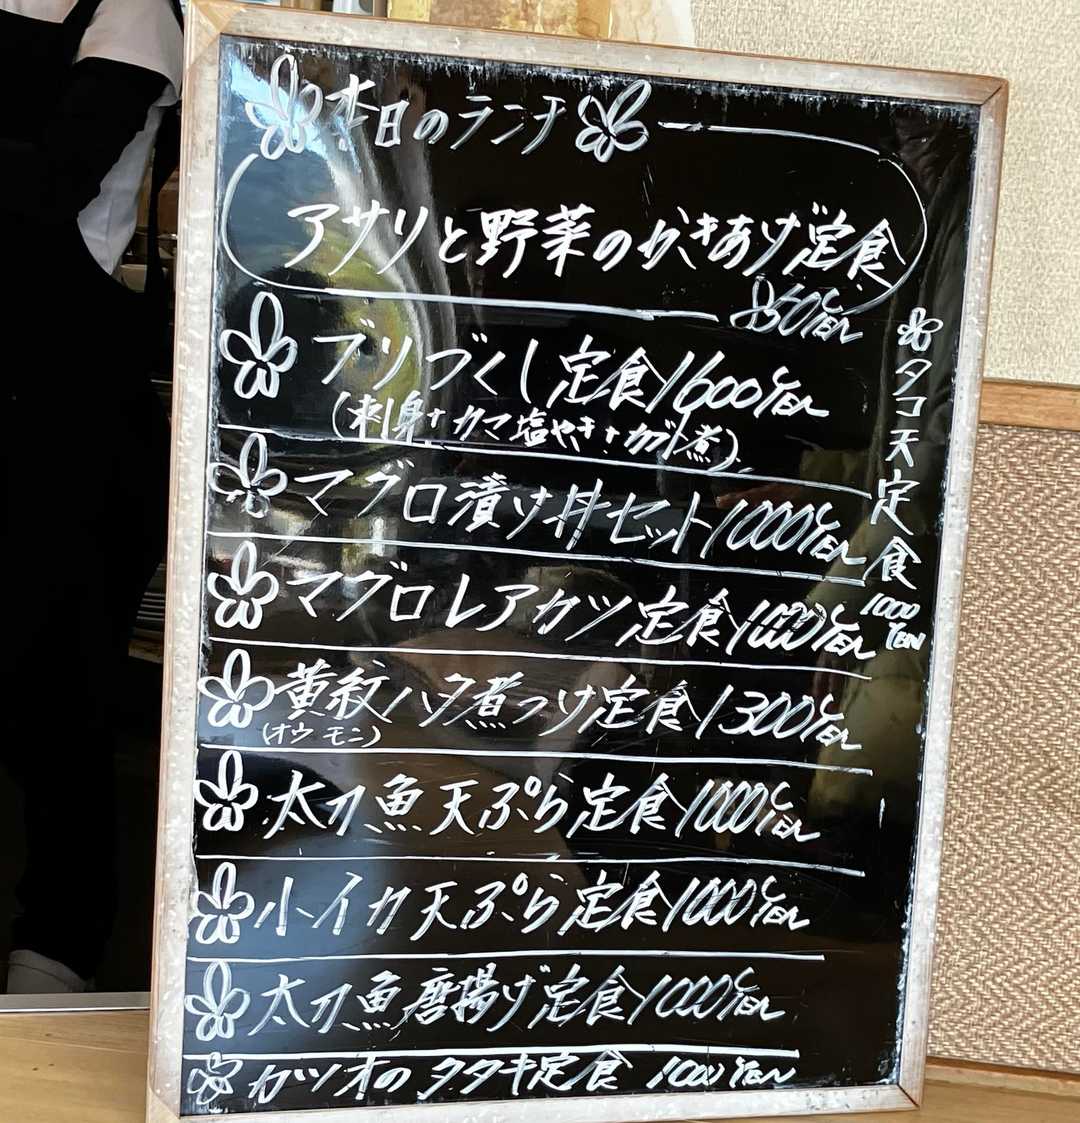 本日のランチ
アサリと野菜のかきあげ定食
850YEN
ブリづくし定食1600YEN
(刺身+カマ塩やき+カブト煮)
マグロ漬け丼セット1000YEN
マグロレアカツ定食1000YEN
黄紋ハタ煮つけ定食1300YEN
(オウモン)
太刀魚天ぷら定食1000YEN
小イカ天ぷら定食1000YEN
太刀魚唐揚げ定食1000YEN
カツオのタタキ定食 1000YEN
タコ天定食
1000
YEN